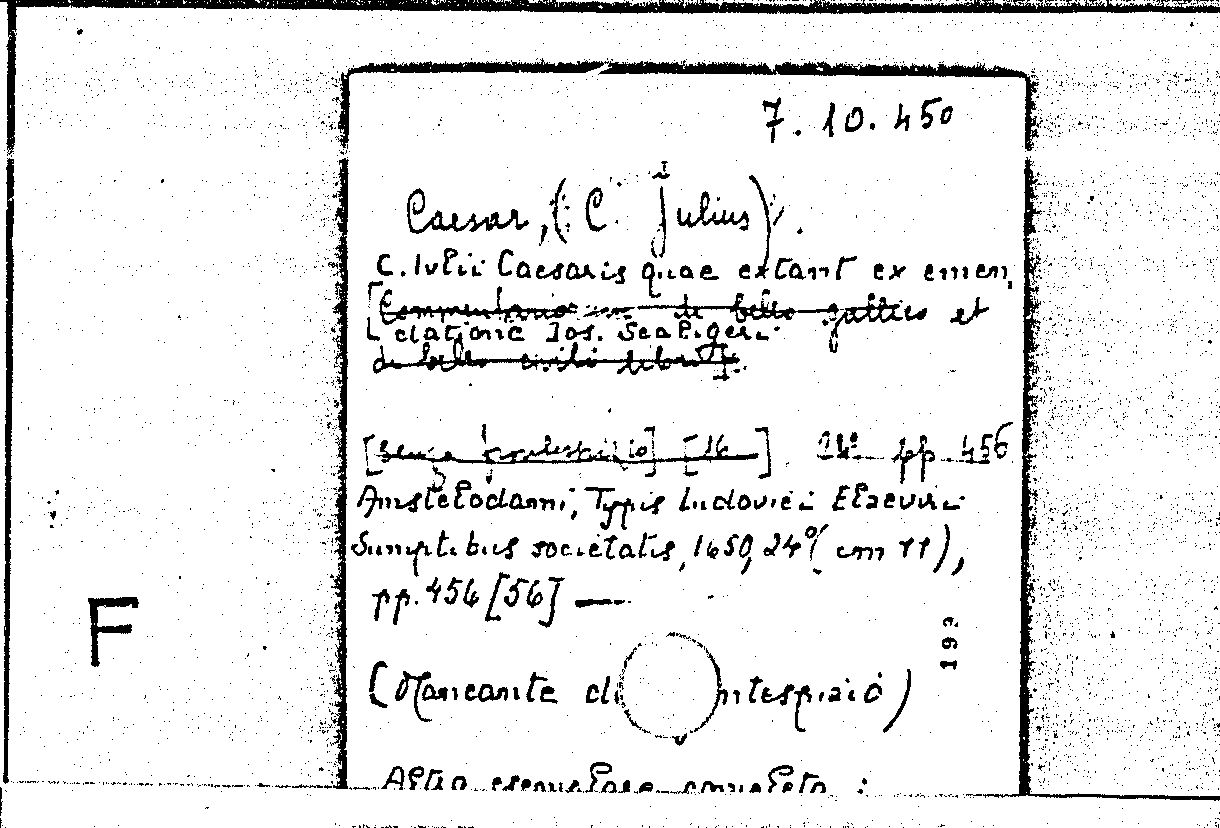 7. 10. 450
Caesar, (C. Julius).
C. Iulii Caesaris quae extant ex emen,
[Commentario de bello gallico et
datione Ios. Scaligeri
de bello civili libro I.
[Senza frontespizio] [16 ] 24° pp 456
Amstelodami, Typis Ludovici Elzevirii
Sumptibus societatis, 1650, 24° (cm 11),
pp. 456 [56] —
F
199
(Mancante di ntespizio)
Altro esemplare completo :